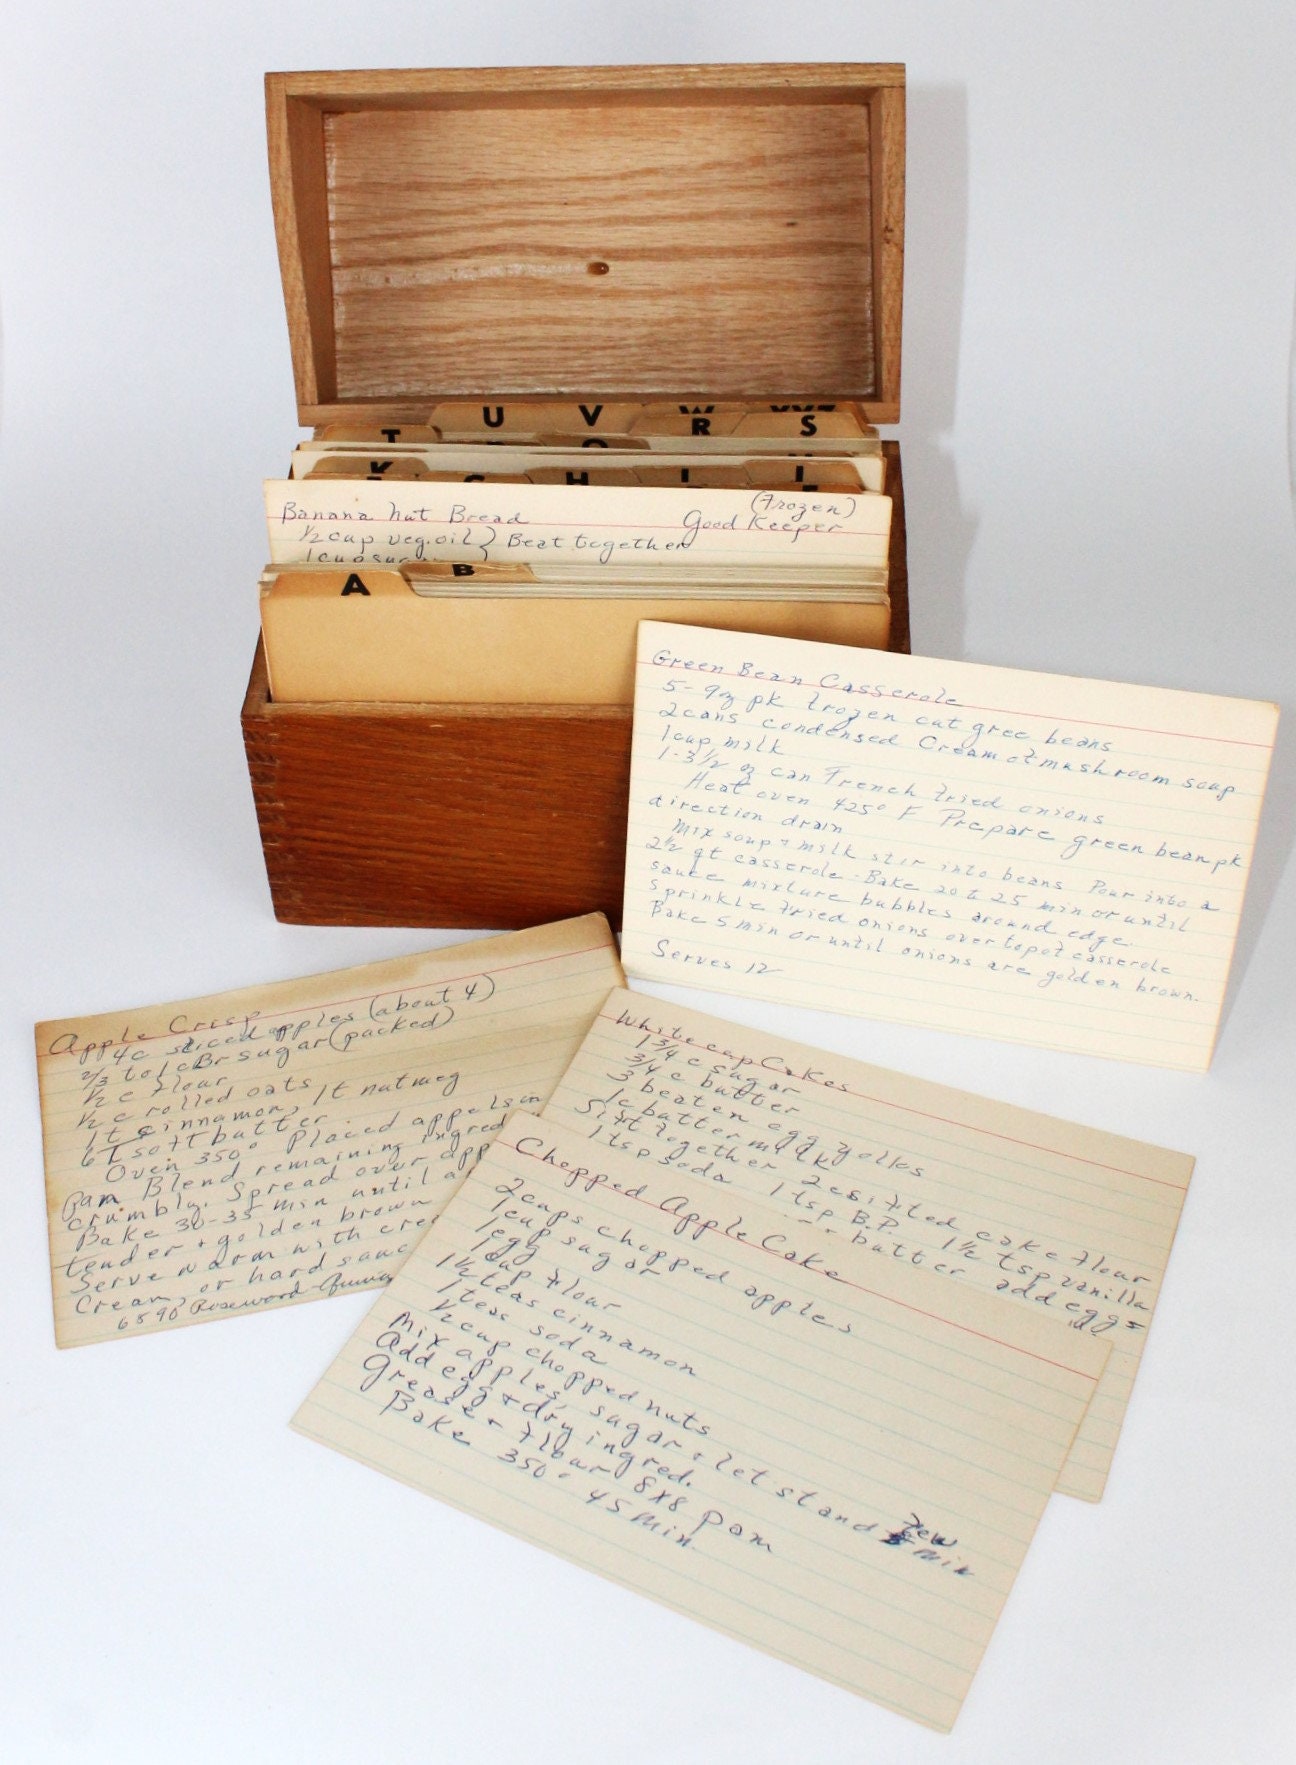 U V W XYZ
T R S
K
H I
Banana Nut Bread (Frozen)
Good Keeper
1/2 cup veg. oil } Beat together
1 cup
A B
Green Bean Casserole
5- 9oz pk frozen cut gree beans
2 cans condensed Cream of mushroom soup
1 cup milk
1-3 1/2 oz can French fried onions
Heat oven 425° F Prepare green bean pk
direction drain
Mix soup + milk stir into beans Pour into a
2 1/2 qt casserole - Bake 20 to 25 min or until
sauce mixture bubbles around edge.
Sprinkle fried onions over top of casserole
Bake 5 min or until onions are golden brown.
Serves 12
Apple Crisp
4c sliced apples (about 4)
2/3 to 1 c Br sugar (packed)
1/2 c flour
1/2 c rolled oats
1 t cinnamon, 1 t nutmeg
6 T soft butter
Oven 350° Placed appels in
pam Blend remaining ingred
crumbly. Spread over app
Bake 30-35 min until a
tender + golden brown
Serve warm with cre
Cream, or hard sauc
6890 Rosewood
White cup Cakes
1 3/4 c sugar
3/4 c butter
3 beaten egg yolks
1c butter milk
Sift together 2c sifted cake flour
1 tsp soda 1 tsp B.P. 1 1/2 tsp vanilla
butter add egg
Chopped Apple Cake
2 cups chopped apples
1 cup sugar
1 egg
1 cup flour
1 1/2 teas cinnamon
1 teas soda
1/2 cup chopped nuts
Mix apples, sugar + let stand few min
Add egg + dry ingred.
Grease + flour 8x8 pam
Bake 350° 45 min.